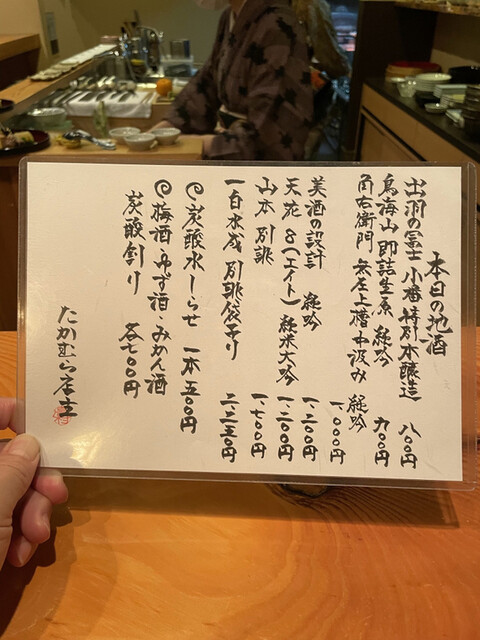 本日の地酒
出羽の冨士 小番 特別本醸造 八〇〇円
鳥海山 即詰生原 純吟 九〇〇円
角右衛門 無圧上槽中汲み 純吟 一、〇〇〇円
美酒の設計 純吟 一、二〇〇円
天花 8(エイト) 純米大吟 一、二〇〇円
山本 別誂 一、七〇〇円
一白水成 別誂袋予り 二、二五〇円
炭酸水しらせ 一本 五〇〇円
梅酒・ゆず酒・みかん酒
炭酸割り 各七〇〇円
たかむら店主